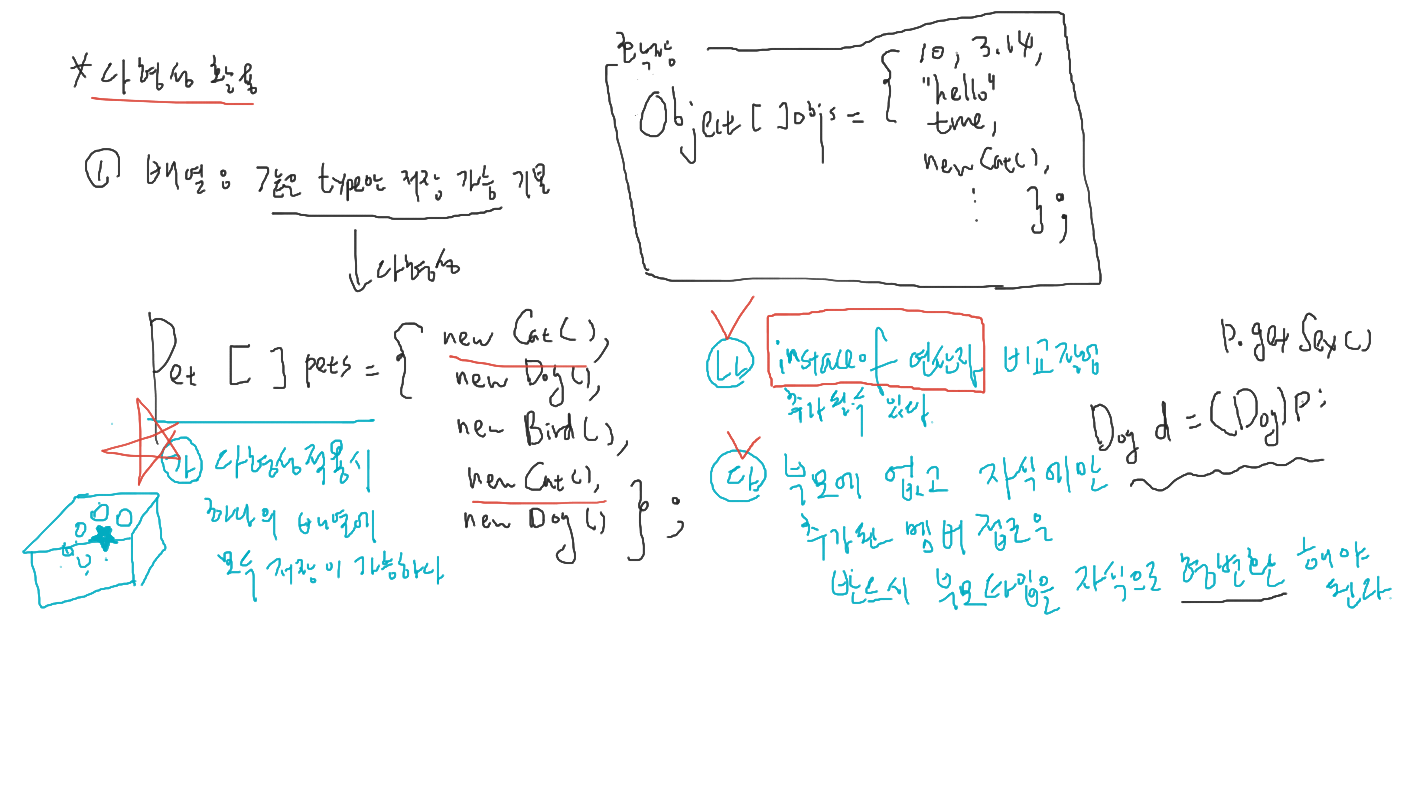 * 다형성 활용
① 배열은 같은 type만 저장 가능 기본
↓ 다형성
Pet [ ] pets = { new Cat(),
new Dog(),
new Bird(),
new Cat(),
new Dog() } ;
㉮ 다형성 적용시
하나의 배열에
모두 저장이 가능하다
Object [ ] objs = { 10, 3.14,
"hello"
true,
new Cat(),
⋮ } ;
㉯ instaceof 연산자 비교작업
추가 될수 있다
p.getSex()
Dog d = (Dog)p;
㉰ 부모에 없고 자식에만
추가된 멤버 접근은
반드시 부모타입을 자식으로 형변환 해야
된다